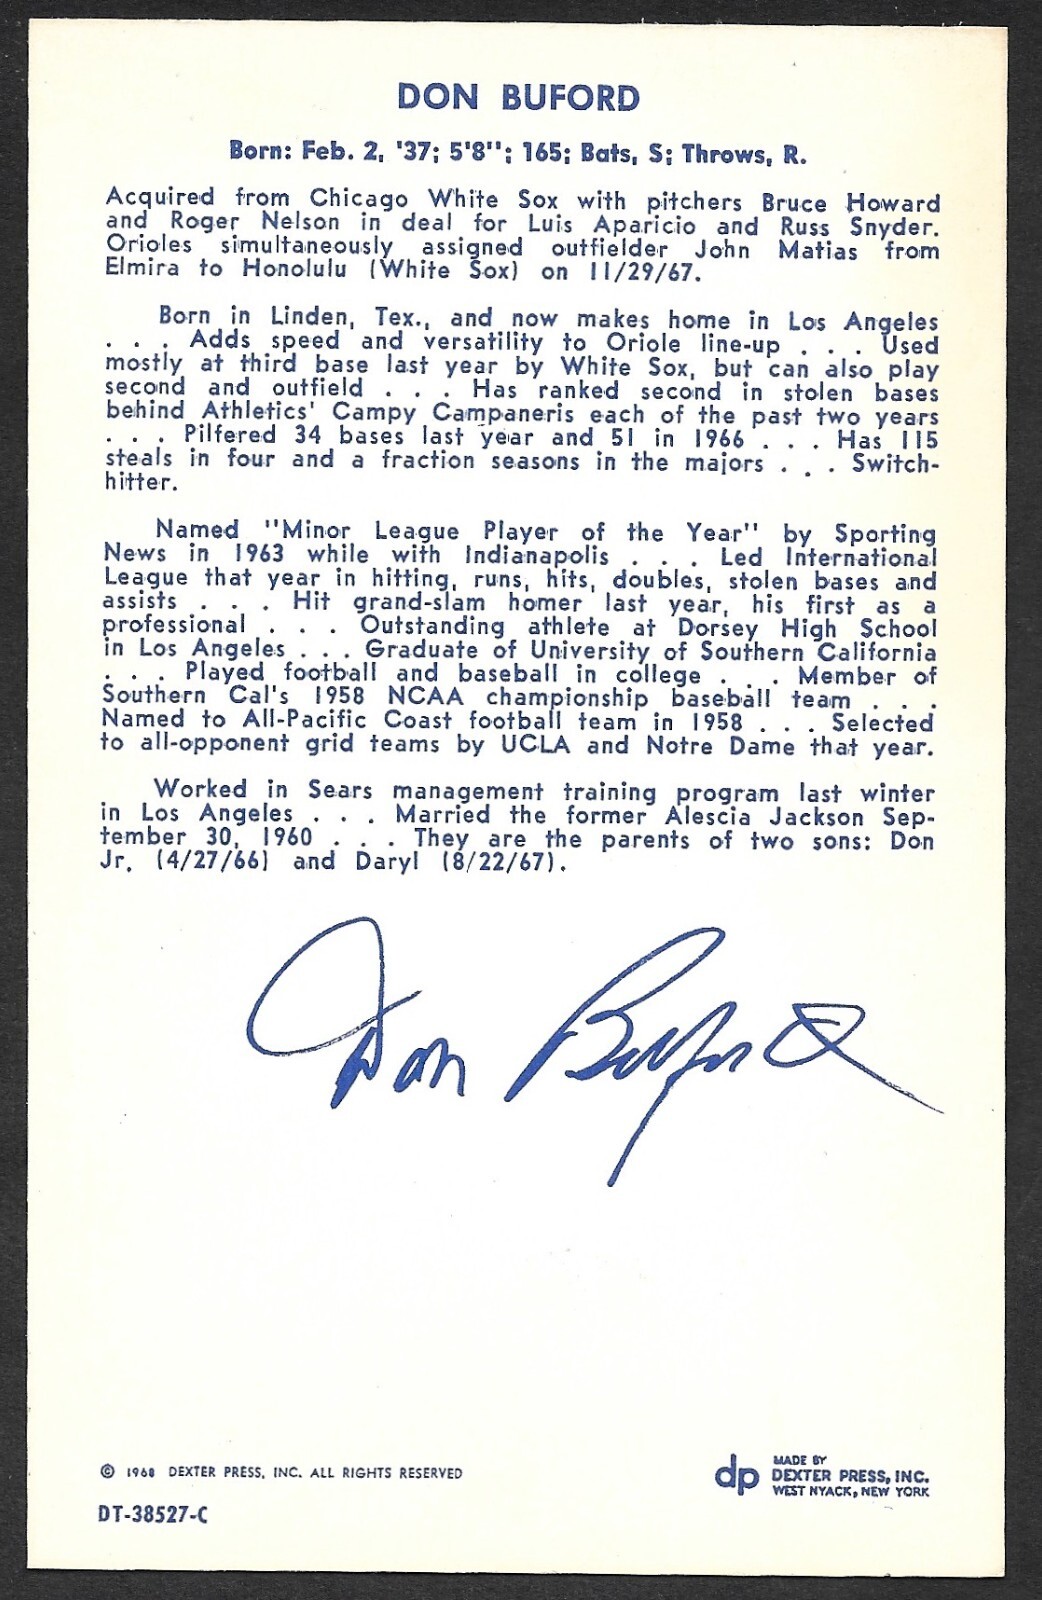 DON BUFORD
Born: Feb. 2, '37; 5'8"; 165; Bats, S; Throws, R.
Acquired from Chicago White Sox with pitchers Bruce Howard
and Roger Nelson in deal for Luis Aparicio and Russ Snyder.
Orioles simultaneously assigned outfielder John Matias from
Elmira to Honolulu (White Sox) on 11/29/67.
Born in Linden, Tex., and now makes home in Los Angeles
. . . Adds speed and versatility to Oriole line-up . . . Used
mostly at third base last year by White Sox, but can also play
second and outfield . . . Has ranked second in stolen bases
behind Athletics' Campy Campaneris each of the past two years
. . . Pilfered 34 bases last year and 51 in 1966 . . . Has 115
steals in four and a fraction seasons in the majors . . . Switch-
hitter.
Named "Minor League Player of the Year" by Sporting
News in 1963 while with Indianapolis . . . Led International
League that year in hitting, runs, hits, doubles, stolen bases and
assists . . . Hit grand-slam homer last year, his first as a
professional . . . Outstanding athlete at Dorsey High School
in Los Angeles . . . Graduate of University of Southern California
. . . Played football and baseball in college . . . Member of
Southern Cal's 1958 NCAA championship baseball team . . .
Named to All-Pacific Coast football team in 1958 . . . Selected
to all-opponent grid teams by UCLA and Notre Dame that year.
Worked in Sears management training program last winter
in Los Angeles . . . Married the former Alescia Jackson Sep-
tember 30, 1960 . . . They are the parents of two sons: Don
Jr. (4/27/66) and Daryl (8/22/67).
Don Buford
© 1968 DEXTER PRESS, INC. ALL RIGHTS RESERVED
DT-38527-C
dp
MADE BY
DEXTER PRESS, INC.
WEST NYACK, NEW YORK